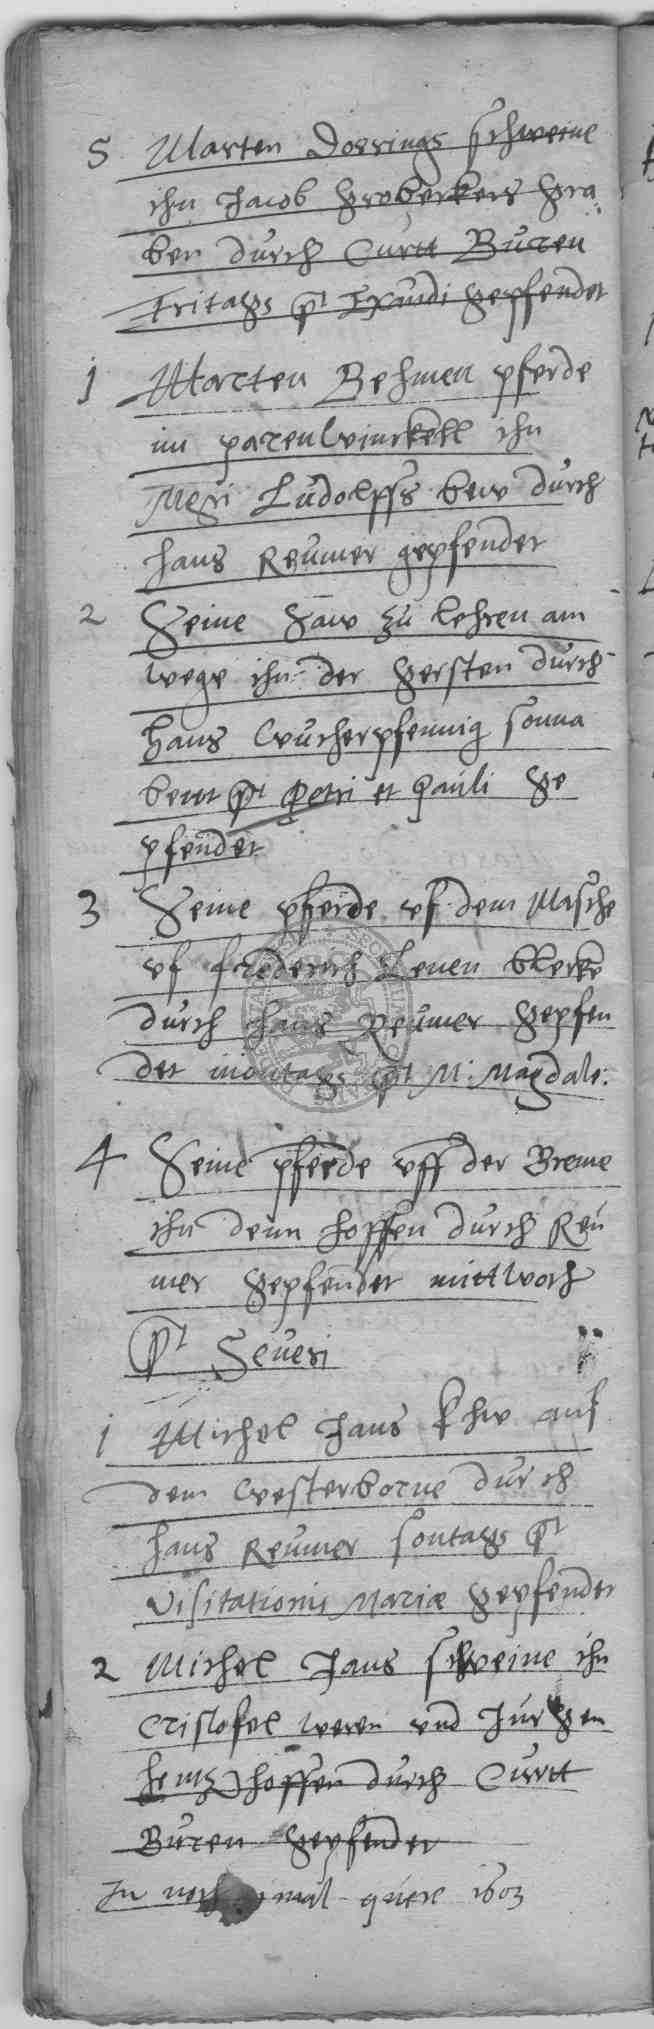 5 Marten Dorrings schweine
ihn Jacob Groberkers gra
ben durch Curtt Buren
fritags pt Exaudi gepfendet
1 Marten Behmen pferde
im parenwinckell ihn
Ludolffs bew durch
Hans Reumer gepfendet
2 Seine saw zu lehren am
wege ihn der gersten durch
Hans Wucherpfennig sonna
bent pt Petri et Pauli ge
pfendet
3 Seine pferde uf dem Masche
uf frederich Leuen blecke
durch Hans Reumer gepfen
det montags pt M: Magdale:
4 Seine pferde uff der Breme
ihn denn hoffen durch Reu
mer gepfendet mittwoch
pt Seueri
1 Michel Hans khw auf
dem Westerborne durch
Hans Reumer sontags pt
Visitationis Mariæ gepfendet
2 Michel Hans schweine ihn
Cristofel und Jurgen
hoffen durch Curtt
Buren gepfendet
noch mal quere 1603